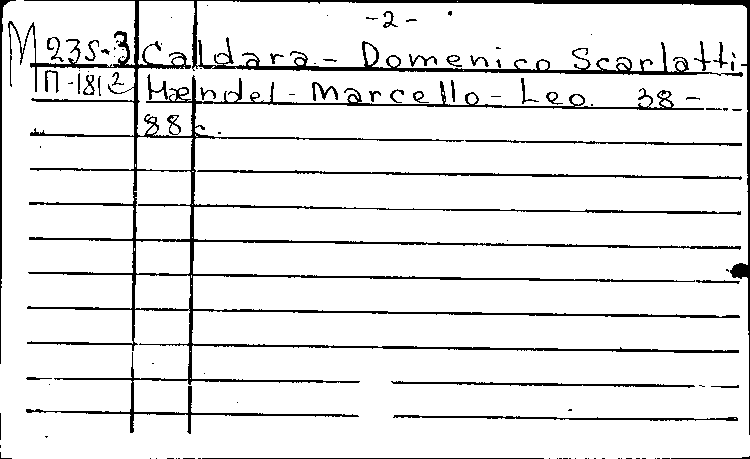 -2-
M 235-3 Caldara - Domenico Scarlatti-
П-1812 Hændel - Marcello - Leo. 38-
88 с.